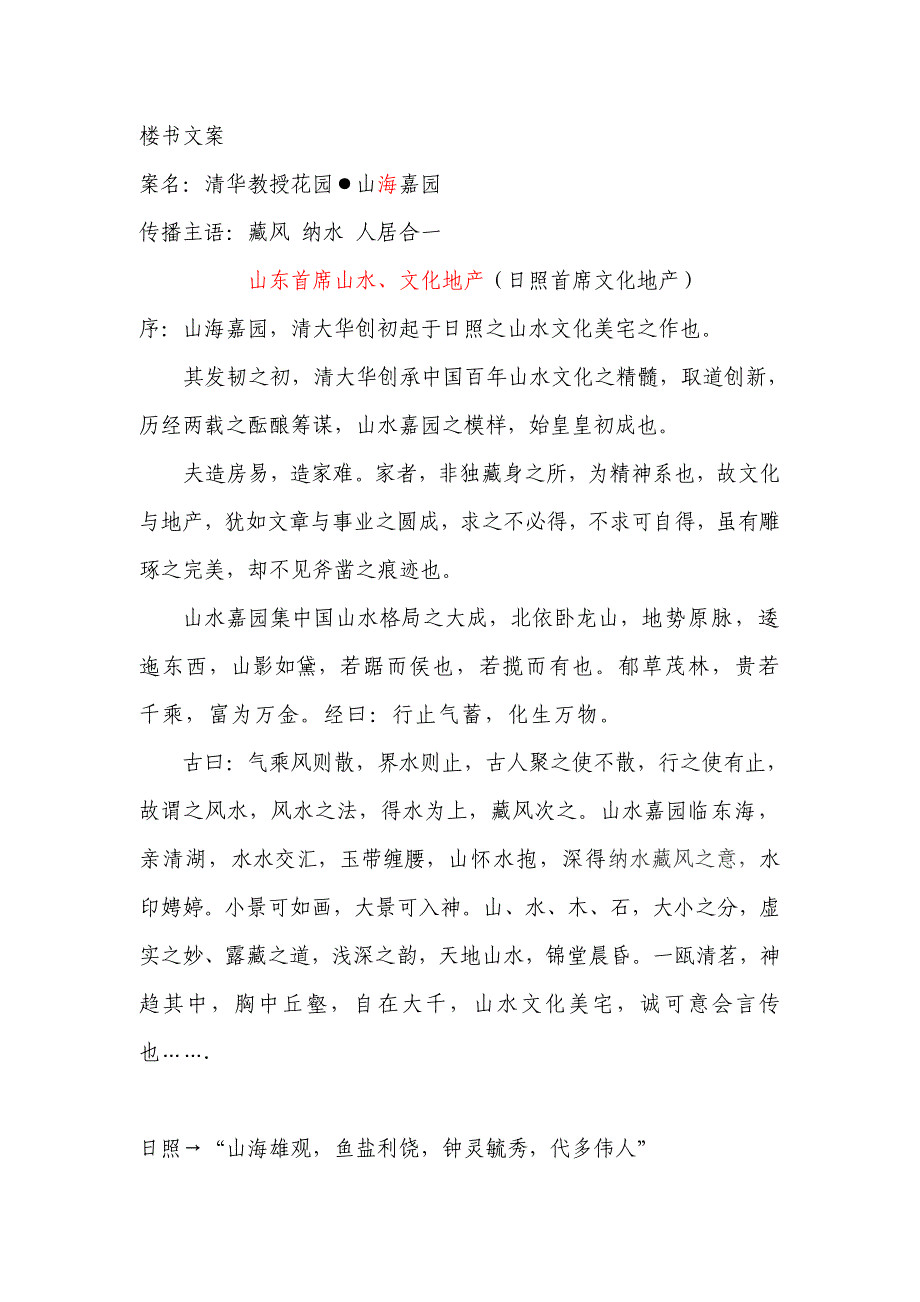 楼书文案
案名：清华教授花园●山海嘉园
传播主语：藏风 纳水 人居合一
山东首席山水、文化地产（日照首席文化地产）
序：山海嘉园，清大华创初起于日照之山水文化美宅之作也。
其发韧之初，清大华创承中国百年山水文化之精髓，取道创新，
历经两载之酝酿筹谋，山水嘉园之模样，始皇皇初成也。
夫造房易，造家难。家者，非独藏身之所，为精神系也，故文化
与地产，犹如文章与事业之圆成，求之不必得，不求可自得，虽有雕
琢之完美，却不见斧凿之痕迹也。
山水嘉园集中国山水格局之大成，北依卧龙山，地势原脉，逶
迤东西，山影如黛，若踞而侯也，若揽而有也。郁草茂林，贵若
千乘，富为万金。经曰：行止气蓄，化生万物。
古曰：气乘风则散，界水则止，古人聚之使不散，行之使有止，
故谓之风水，风水之法，得水为上，藏风次之。山水嘉园临东海，
亲清湖，水水交汇，玉带缠腰，山怀水抱，深得纳水藏风之意，水
印娉婷。小景可如画，大景可入神。山、水、木、石，大小之分，虚
实之妙、露藏之道，浅深之韵，天地山水，锦堂晨昏。一瓯清茗，神
趋其中，胸中丘壑，自在大千，山水文化美宅，诚可意会言传
也…….
日照→“山海雄观，鱼盐利饶，钟灵毓秀，代多伟人”